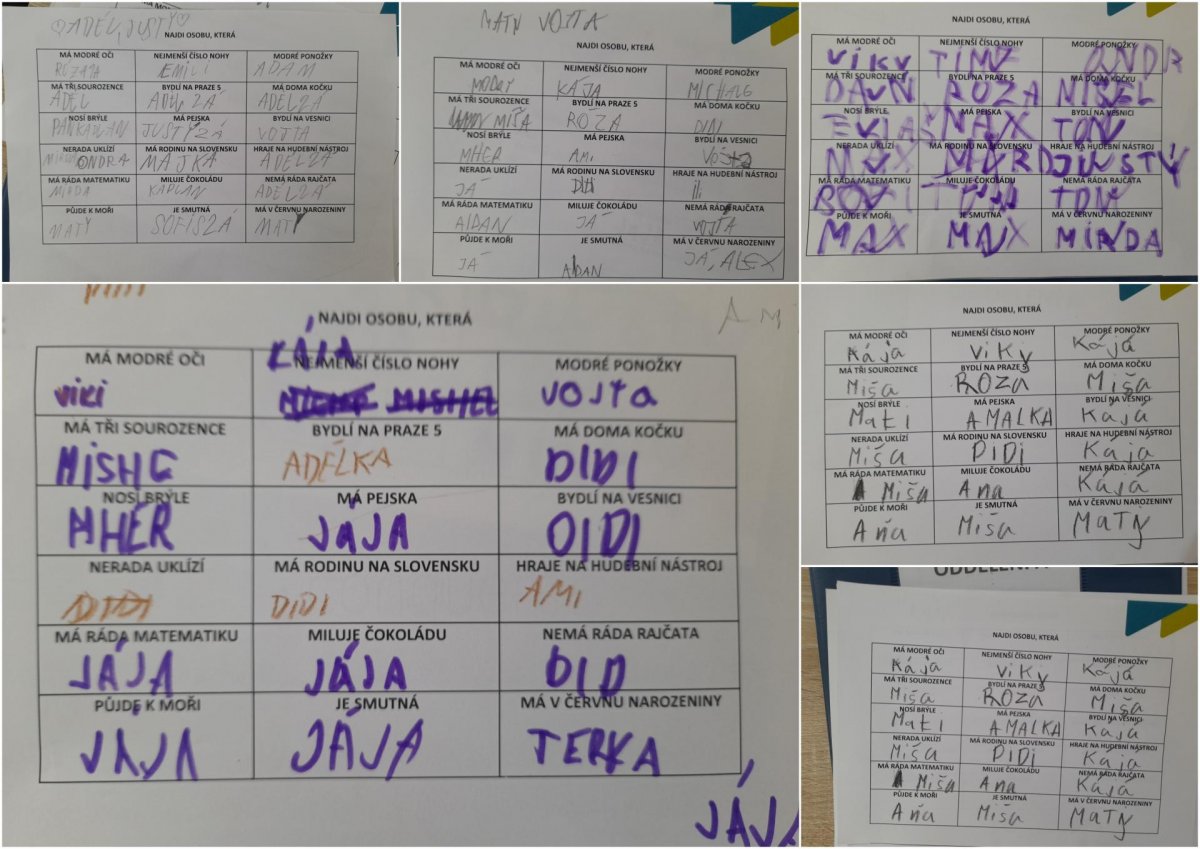 ♡ADEL, JUSTY♡
NAJDI OSOBU, KTERÁ
MÁ MODRÉ OČI NEJMENŠÍ ČÍSLO NOHY MODRÉ PONOŽKY
EMILI ADAM
MÁ TŘI SOUROZENCE BYDLÍ NA PRAZE 5 MÁ DOMA KOČKU
ADEL ADELZÁ ADELZÁ
NOSÍ BRÝLE MÁ PEJSKA BYDLÍ NA VESNICI
JUSTYZÁ VOJTA
NERADA UKLÍZÍ MÁ RODINU NA SLOVENSKU HRAJE NA HUDEBNÍ NÁSTROJ
ONDRA MAJKA ADELZÁ
MÁ RÁDA MATEMATIKU MILUJE ČOKOLÁDU NEMÁ RÁDA RAJČATA
KAPLAN ADELZÁ
PŮJDE K MOŘI JE SMUTNÁ MÁ V ČERVNU NAROZENINY
MATY SOFISZÁ MATY
MATY VOJTA
NAJDI OSOBU, KTERÁ
MÁ MODRÉ OČI NEJMENŠÍ ČÍSLO NOHY MODRÉ PONOŽKY
KÁJA
MÁ TŘI SOUROZENCE BYDLÍ NA PRAZE 5 MÁ DOMA KOČKU
MIŠA ROZA DIDI
NOSÍ BRÝLE MÁ PEJSKA BYDLÍ NA VESNICI
MHER AMI
NERADA UKLÍZÍ MÁ RODINU NA SLOVENSKU HRAJE NA HUDEBNÍ NÁSTROJ
JÁ
MÁ RÁDA MATEMATIKU MILUJE ČOKOLÁDU NEMÁ RÁDA RAJČATA
AIDAN JÁ VOJTA
PŮJDE K MOŘI JE SMUTNÁ MÁ V ČERVNU NAROZENINY
JÁ AIDAN JÁ, ALEX
NAJDI OSOBU, KTERÁ
MÁ MODRÉ OČI NEJMENŠÍ ČÍSLO NOHY MODRÉ PONOŽKY
VIKY ONDR
MÁ TŘI SOUROZENCE BYDLÍ NA PRAZE 5 MÁ DOMA KOČKU
ROZA MISEL
NOSÍ BRÝLE MÁ PEJSKA BYDLÍ NA VESNICI
MAX
NERADA UKLÍZÍ MÁ RODINU NA SLOVENSKU HRAJE NA HUDEBNÍ NÁSTROJ
MAX
MÁ RÁDA MATEMATIKU MILUJE ČOKOLÁDU NEMÁ RÁDA RAJČATA
PŮJDE K MOŘI JE SMUTNÁ MÁ V ČERVNU NAROZENINY
MAX MAX MINDA
AM
NAJDI OSOBU, KTERÁ
KÁJA
MÁ MODRÉ OČI NEJMENŠÍ ČÍSLO NOHY MODRÉ PONOŽKY
viki MISHEL VOJTa
MÁ TŘI SOUROZENCE BYDLÍ NA PRAZE 5 MÁ DOMA KOČKU
ADÉLKA DIDI
NOSÍ BRÝLE MÁ PEJSKA BYDLÍ NA VESNICI
MHER JÁJA DIDI
NERADA UKLÍZÍ MÁ RODINU NA SLOVENSKU HRAJE NA HUDEBNÍ NÁSTROJ
DIDI DIDI AMI
MÁ RÁDA MATEMATIKU MILUJE ČOKOLÁDU NEMÁ RÁDA RAJČATA
JÁJA JÁJA DID
PŮJDE K MOŘI JE SMUTNÁ MÁ V ČERVNU NAROZENINY
JÁJA JÁJA TERKA
JÁJA
NAJDI OSOBU, KTERÁ
MÁ MODRÉ OČI NEJMENŠÍ ČÍSLO NOHY MODRÉ PONOŽKY
Kája viky Kájá
MÁ TŘI SOUROZENCE BYDLÍ NA PRAZE 5 MÁ DOMA KOČKU
Miša ROZa Miša
NOSÍ BRÝLE MÁ PEJSKA BYDLÍ NA VESNICI
Mati AMALKA Kaja
NERADA UKLÍZÍ MÁ RODINU NA SLOVENSKU HRAJE NA HUDEBNÍ NÁSTROJ
Miša DIDi Kája
MÁ RÁDA MATEMATIKU MILUJE ČOKOLÁDU NEMÁ RÁDA RAJČATA
Miša Ana Kájá
PŮJDE K MOŘI JE SMUTNÁ MÁ V ČERVNU NAROZENINY
Aňa Miša MaTy
NAJDI OSOBU, KTERÁ
MÁ MODRÉ OČI NEJMENŠÍ ČÍSLO NOHY MODRÉ PONOŽKY
Kája viky Kájá
MÁ TŘI SOUROZENCE BYDLÍ NA PRAZE 5 MÁ DOMA KOČKU
Miša ROZa Miša
NOSÍ BRÝLE MÁ PEJSKA BYDLÍ NA VESNICI
Mati AMALKA Kaja
NERADA UKLÍZÍ MÁ RODINU NA SLOVENSKU HRAJE NA HUDEBNÍ NÁSTROJ
Miša DIDi Kája
MÁ RÁDA MATEMATIKU MILUJE ČOKOLÁDU NEMÁ RÁDA RAJČATA
Miša Ana Kájá
PŮJDE K MOŘI JE SMUTNÁ MÁ V ČERVNU NAROZENINY
Aňa Miša MaTy